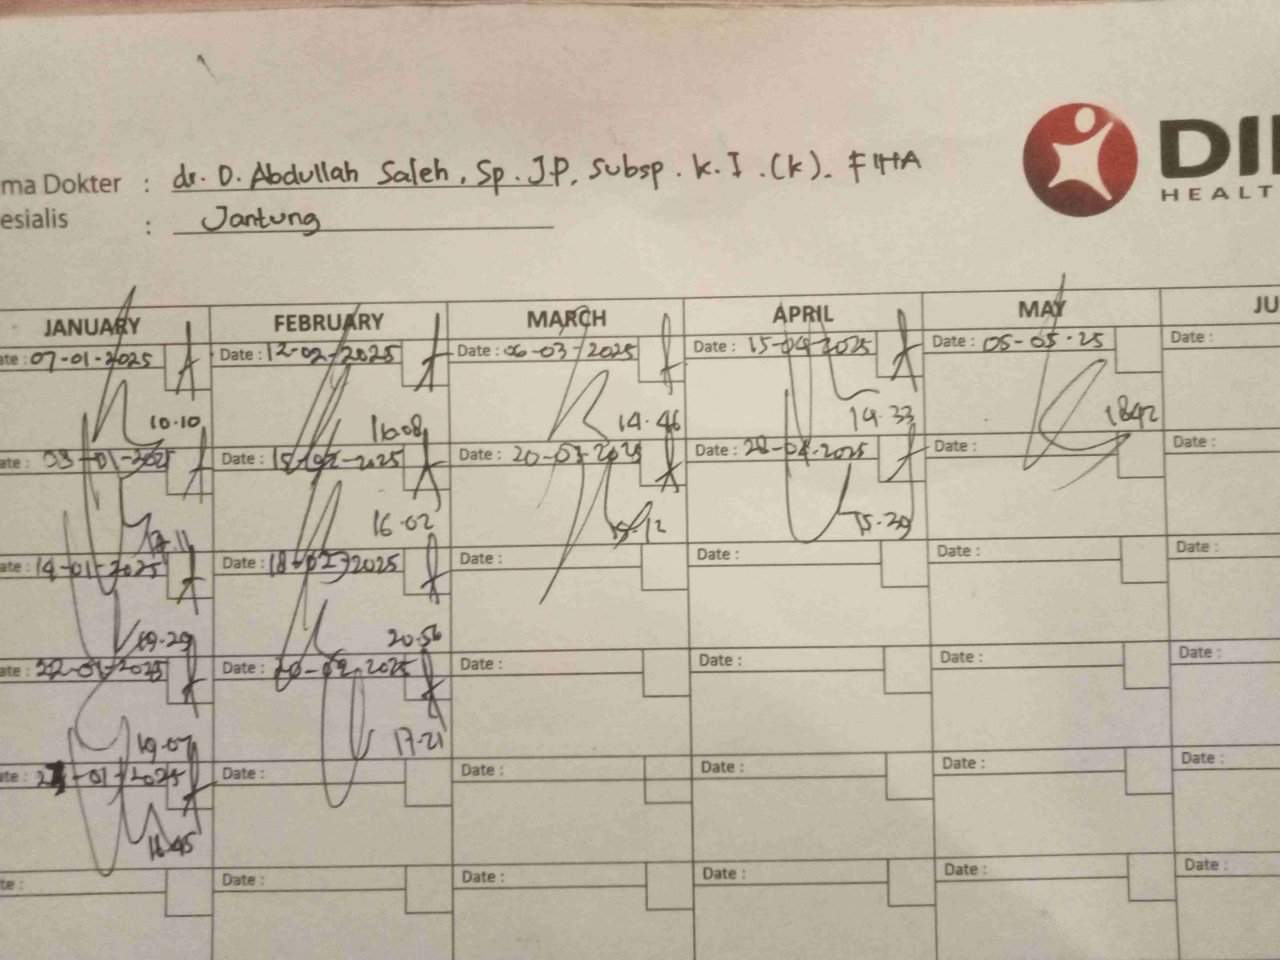 ma Dokter : dr. D. Abdullah Saleh, Sp. J.P, Subsp. K.I.(K). FIHA
esialis : Jantung
DI
HEALT
JANUARY FEBRUARY MARCH APRIL MAY JU
ate: 07-01-2025 Date: 12-02-2025 Date: 06-03-2025 Date: 15-04-2025 Date: 05-05-25 Date:
10.10 16.08 14.46 14.33 1842
ate: 03-01-2025 Date: -02-2025 Date: 20-03-2025 Date: 28-04-2025 Date: Date:
17.11 16.02 15.12 15.29
ate: 14-01-2025 Date: 18-02-2025 Date: Date: Date: Date:
19.29 20.56
ate: 22-01-2025 Date: 20-02-2025 Date: Date: Date: Date:
19.07 17.21
ate: -01-2025 Date: Date: Date: Date: Date:
16.45
te: Date: Date: Date: Date: Date: